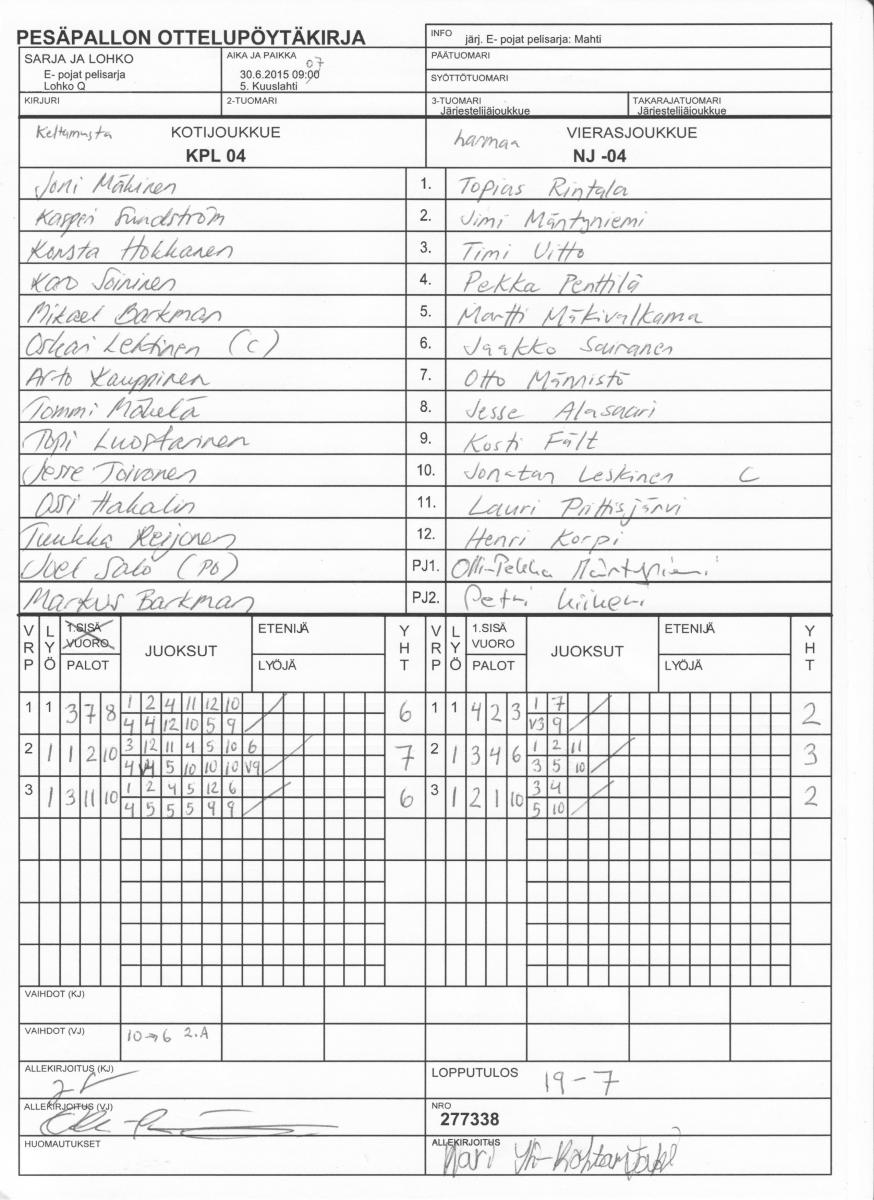 PESÄPALLON OTTELUPÖYTÄKIRJA
INFO järj. E- pojat pelisarja: Mahti
SARJA JA LOHKO
E- pojat pelisarja
Lohko Q
AIKA JA PAIKKA
07
30.6.2015 09:00
5. Kuuslahti
PÄÄTUOMARI
SYÖTTÖTUOMARI
KIRJURI
2-TUOMARI
3-TUOMARI
Järjestelijäjoukkue
TAKARAJATUOMARI
Järjestelijäjoukkue
Keltamusta KOTIJOUKKUE
KPL 04
harmaa VIERASJOUKKUE
NJ -04
Joni Mäkinen 1. Topias Rintala
Kasperi Sundström 2. Jimi Mäntyniemi
Konsta Hokkanen 3. Timi Uitto
Karo Soininen 4. Pekka Penttilä
Mikael Barkman 5. Martti Mäkivalkama
Oskari Lehtinen (C) 6. Jaakko Sauranen
Arto Kauppinen 7. Otto Männistö
Tommi Mäkelä 8. Jesse Alasaari
Topi Luostarinen 9. Kosti Fält
Jesse Toivonen 10. Jonatan Leskinen C
Ossi Hakalin 11. Lauri Piittisjärvi
Tuukka Reijonen 12. Henri Korpi
Joel Salo (PO) PJ1. Olli-Pekka Mäntyniemi
Markus Barkman PJ2. Petri
VRP LYÖ 1.SISÄ VUORO PALOT JUOKSUT ETENIJÄ LYÖJÄ YHT VRP LYÖ 1.SISÄ VUORO PALOT JUOKSUT ETENIJÄ LYÖJÄ YHT
1 1 3 7 8 1 2 4 11 12 10 6 1 1 4 2 3 1 7 2
4 4 12 10 5 9 V3 9
2 1 1 2 10 3 12 11 4 5 10 6 7 2 1 3 4 6 1 2 11 3
4 V4 5 10 10 10 V9 3 5 10
3 1 3 11 10 1 2 4 5 12 6 6 3 1 2 1 10 3 4 2
4 5 5 5 9 9 5 10
VAIHDOT (KJ)
VAIHDOT (VJ) 10→6 2.A
ALLEKIRJOITUS (KJ)
LOPPUTULOS 19-7
ALLEKIRJOITUS (VJ)
NRO
277338
HUOMAUTUKSET
ALLEKIRJOITUS
Mari